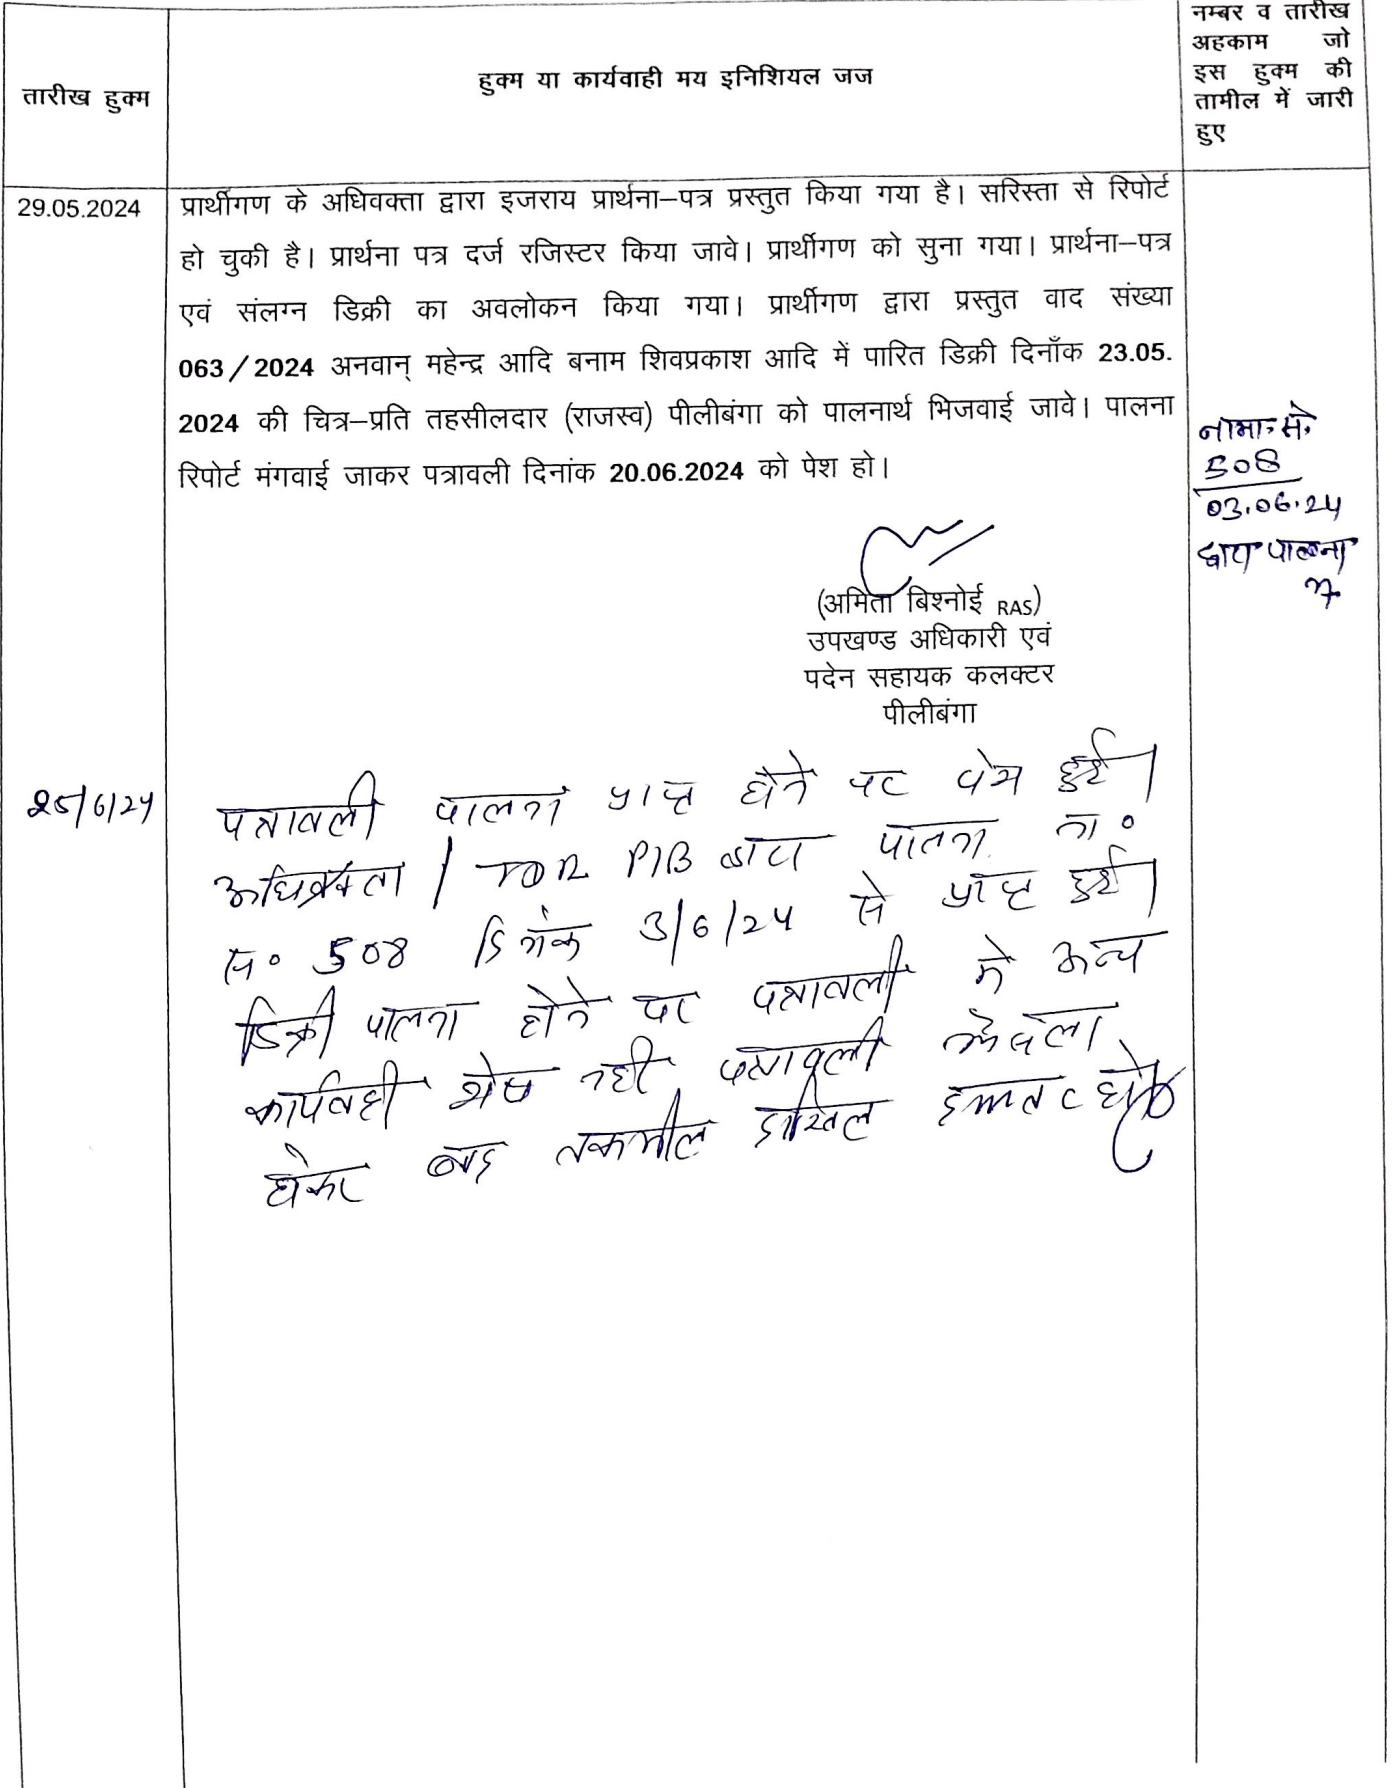 तारीख हुक्म
हुक्म या कार्यवाही मय इनिशियल जज
नम्बर व तारीख
अहकाम जो
इस हुक्म की
तामील में जारी
हुए
29.05.2024
प्रार्थीगण के अधिवक्ता द्वारा इजराय प्रार्थना–पत्र प्रस्तुत किया गया है। सरिस्ता से रिपोर्ट
हो चुकी है। प्रार्थना पत्र दर्ज रजिस्टर किया जावे। प्रार्थीगण को सुना गया। प्रार्थना–पत्र
एवं संलग्न डिक्री का अवलोकन किया गया। प्रार्थीगण द्वारा प्रस्तुत वाद संख्या
063/2024 अनवान् महेन्द्र आदि बनाम शिवप्रकाश आदि में पारित डिक्री दिनाँक 23.05.
2024 की चित्र–प्रति तहसीलदार (राजस्व) पीलीबंगा को पालनार्थ भिजवाई जावे। पालना
रिपोर्ट मंगवाई जाकर पत्रावली दिनांक 20.06.2024 को पेश हो।
(अमिता बिश्नोई RAS)
उपखण्ड अधिकारी एवं
पदेन सहायक कलक्टर
पीलीबंगा
508
03.06.24
द्वारा पालना
25/6/24
पत्रावली पालना प्राप्त होने पर पेश हुई।
अधिवक्ता। TDR PIB द्वारा पालना
स॰ 508 दिनांक 3/6/24 से प्राप्त हुई।
डिक्री पालना होने पर पत्रावली मे अन्य
कार्यवाही शेष नही पत्रावली फैसला
होकर बाद तकमील दाखिल दफ्तर हो